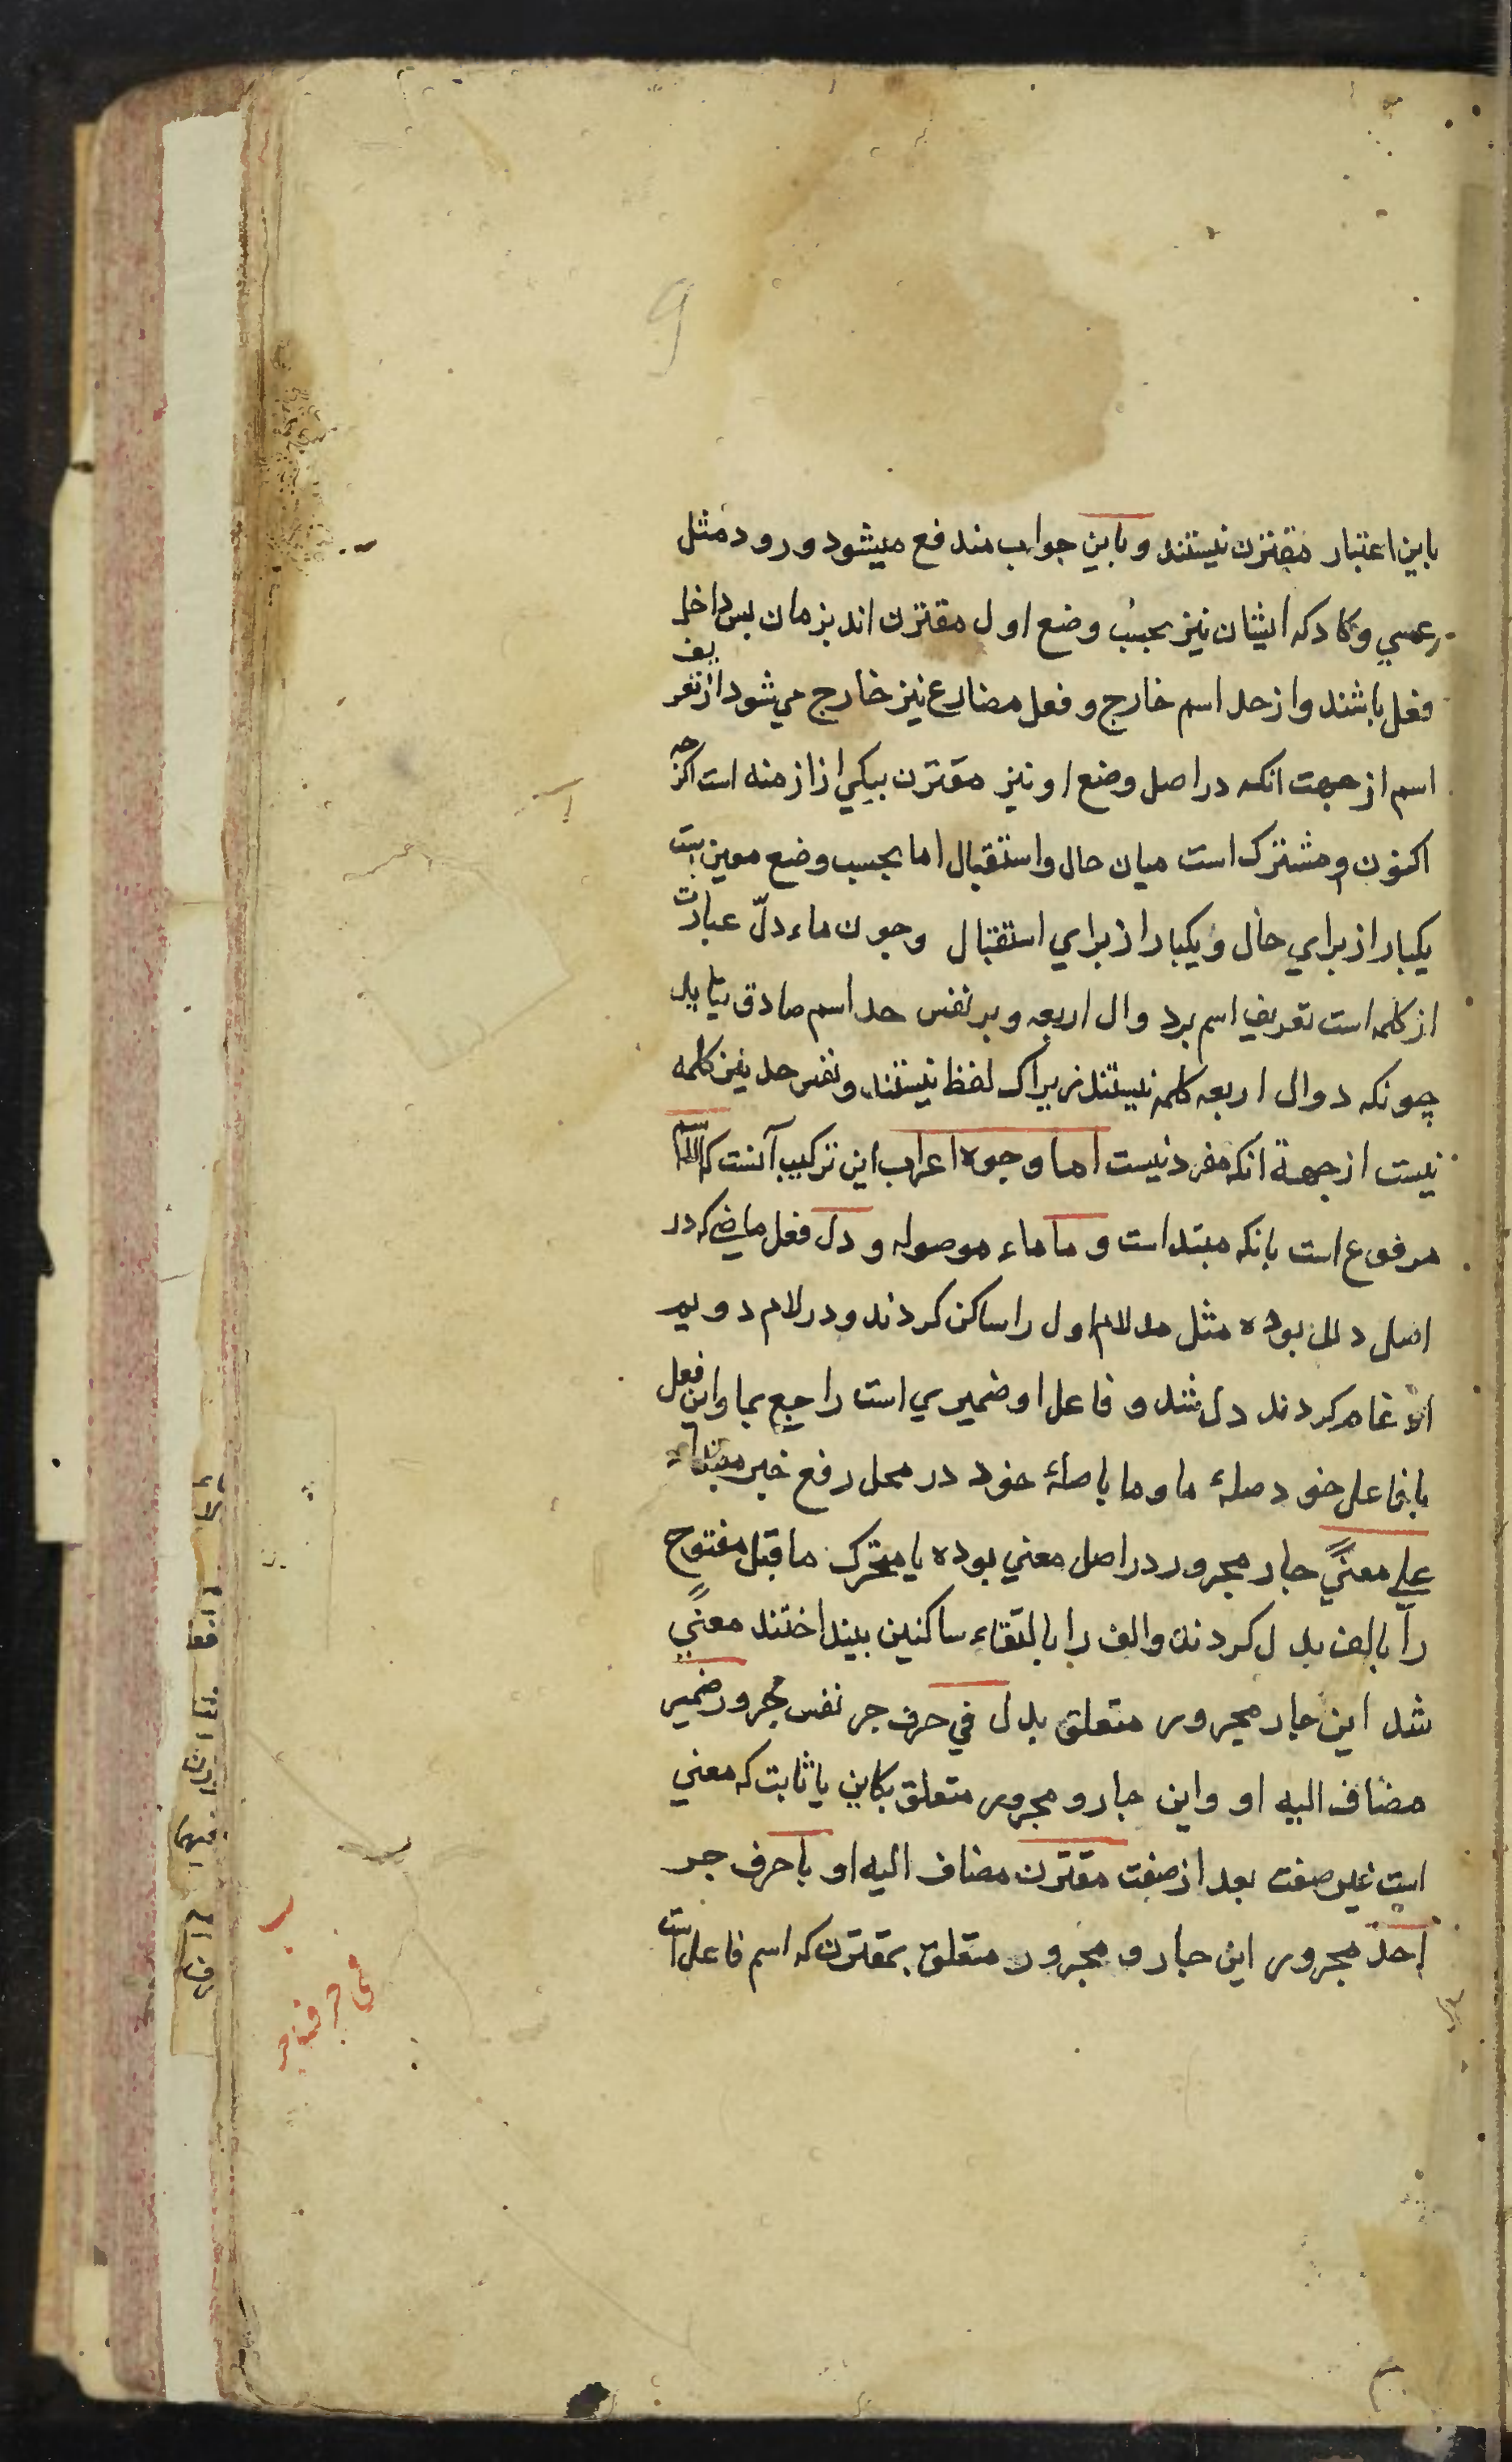 باین اعتبار مقترن نیستند و باین جواب مندفع میشود ورود مثل
عسي و کاد که ایشان نیز بحسب وضع اول مقترن اند بزمان پس داخل
فعل باشند و از حد اسم خارج و فعل مضارع نیز خارج می شود از تعریف
اسم از جهت انکه در اصل وضع او نیز مقترن بیکي از ازمنه است اکرچه
اکنون مشترک است میان حال و استقبال اما بحسب وضع
یکبار از براي حال و یکبار از براي استقبال وجون ماء دلّ عبارت
از کلمه است تعریف اسم بر دوال اربعه و بر نفس حد اسم صادق نیاید
چونکه دوال اربعه کلمه نیستند زیراک لفظ نیستند و نفس حد نیز کلمه
نیست از جهة انکه مفرد نیست اما وجوه اعراب این ترکیب آنست که الاسم
مرفوع است بانکه مبتداست و ما ماء موصوله و دل فعل ماضی که در
اصل دلل بوده مثل مد لام اول را ساکن کردند و در لام دویم
ادغام کردند دل شد و فاعل او ضمیري است راجع بما و این فعل
با فاعل خود صلهٔ ما و ما با صلهٔ خود در محل رفع خبر مبتداء
علي معنًي جار مجرور در اصل معني بوده یا متحرک ما قبل مفتوح
را بالف بدل کردند و الف را بالتقاء ساکنین بینداختند معنًي
شد این جار مجرور متعلق بدل في حرف جر نفس مجرور ضمیر
مضاف الیه او و این جار و مجرور متعلق بکاین یا ثابت که معني
است غیر صفت بعد از صفت مقترن مضاف الیه او با حرف جر
احد مجرور این جار و مجرور متعلق بمقترن که اسم فاعل است